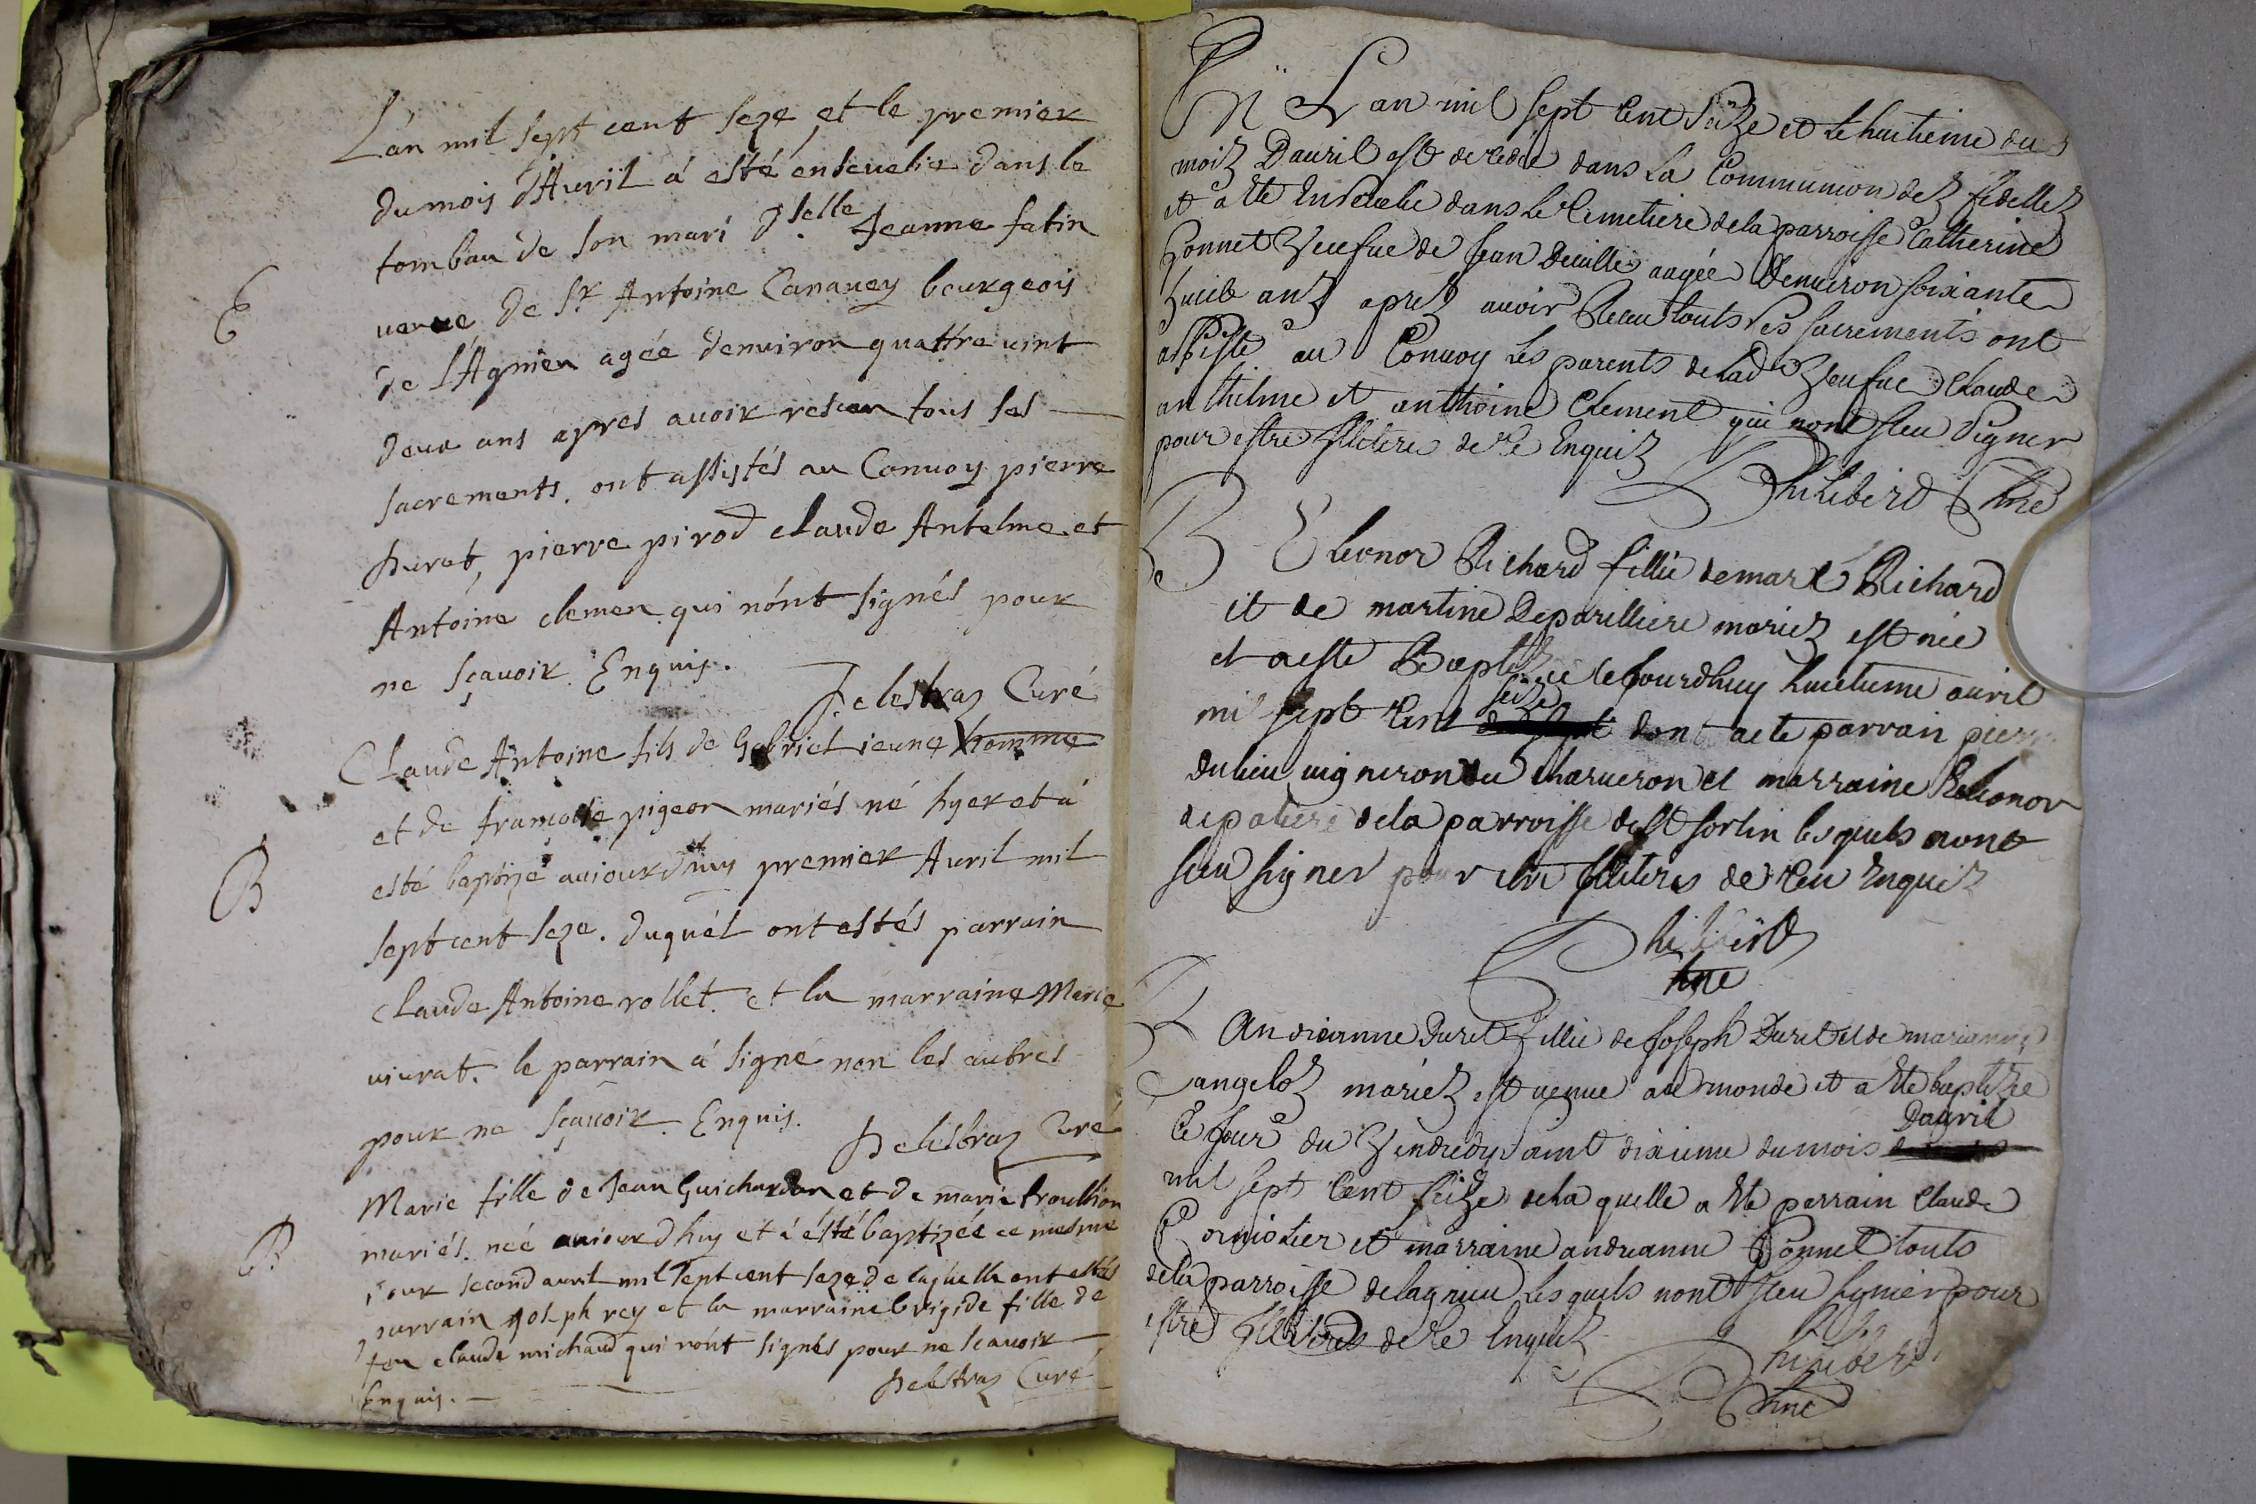 L'an mil sept cent seze et le premier
du mois d'Avril a esté ensevelie dans le
tombau de son mari dselle Jeanne fatin
veuve de Sr Antoine Canavey bourgeois
E
de l'Agnieu agée denviron quattre vint
deux ans apres avoir resceu tous ses
sacrements. ont assistés au Convoy pierre
Duret, pierre pirod claude Antelme et
Antoine clemen qui n'ont signés pour
ne sçavoir Enquis.
Delestraz Curé
Claude Antoine fils de Gabriel jeune homme
et de françoise pigeon mariés né hyer et a
B
esté baptizé aujourdhuy premier Avril mil
sept cent seze. duquel ont estés parrain
Claude Antoine rollet et la marraine Marie
vivrat. le parrain a signé non les autres
pour ne sçavoir Enquis.
Delestraz Curé
Marie fille de Jean Guichardon et de marie troullion
B
mariés. née aujourdhuy et a ésté baptizée ce mesme
jour second avril mil sept cent seze de laquelle ont estés
parrain joseph rey et la marraine brigide fille de
feu claude michaud qui n'ont signés pour ne scavoir
Enquis.
Delestraz Curé
L an mil sept Cent Seize et le huitieme du
mois Dauril est decedée dans La Communion dez fidellez
et a ete Ensevelie dans le Cimetiere dela parroisse Catherine
bonnet Veufue de Jean Decullie aagée Denuiron soixante
huict anz aprez auoir Receu touts Les sacrements ont
assiste au Conuoy Les parents de Lade Veufue Claude
anthelme et anthoine Clement qui nont sceu Signer
pour estre illitere de ce Enquiz
Philiberd Pbre
B
Eleonor Richard fillie de marc Richard
et de martine Deparilliere mariez est née
et a este Baptizée ce Jourdhuy huictieme auril
seize
mil sept Cent dont acte parrain pierre
dulieu uigneron du charueron et marraine Eleonor
depaliere dela parroisse de St sorlin lesquels nont
sceu signer pour estre illiteres de ceu Enquiz
Philiberd
Pbre
Andreanne Duret fillie de Joseph Duret et de marianne
Cangeloz mariez est venue au monde et a ete baptizée
Dauril
Ce Jour du Vendredy Saint dixieme du mois
mil sept Cent seize de la quelle a ete parrain Claude
Corniolier et marraine andreanne Bonnet touts
dela parroisse delagnieu Les quels nont sceu signer pour
estre illiteres de ce Enquiz
Philiberd
Pbre